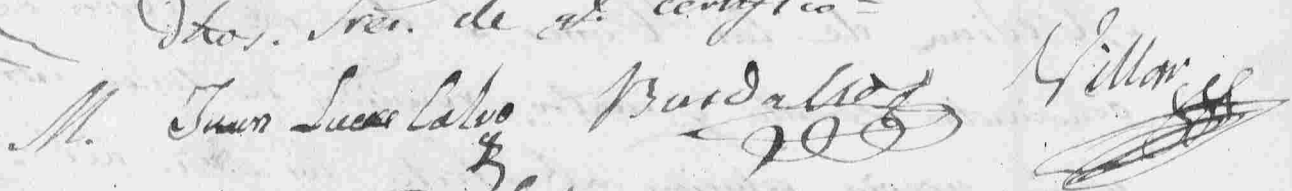 dhos. Sres. de q. certifico=
M. Juan Lucas Calvo Burdallos Villar